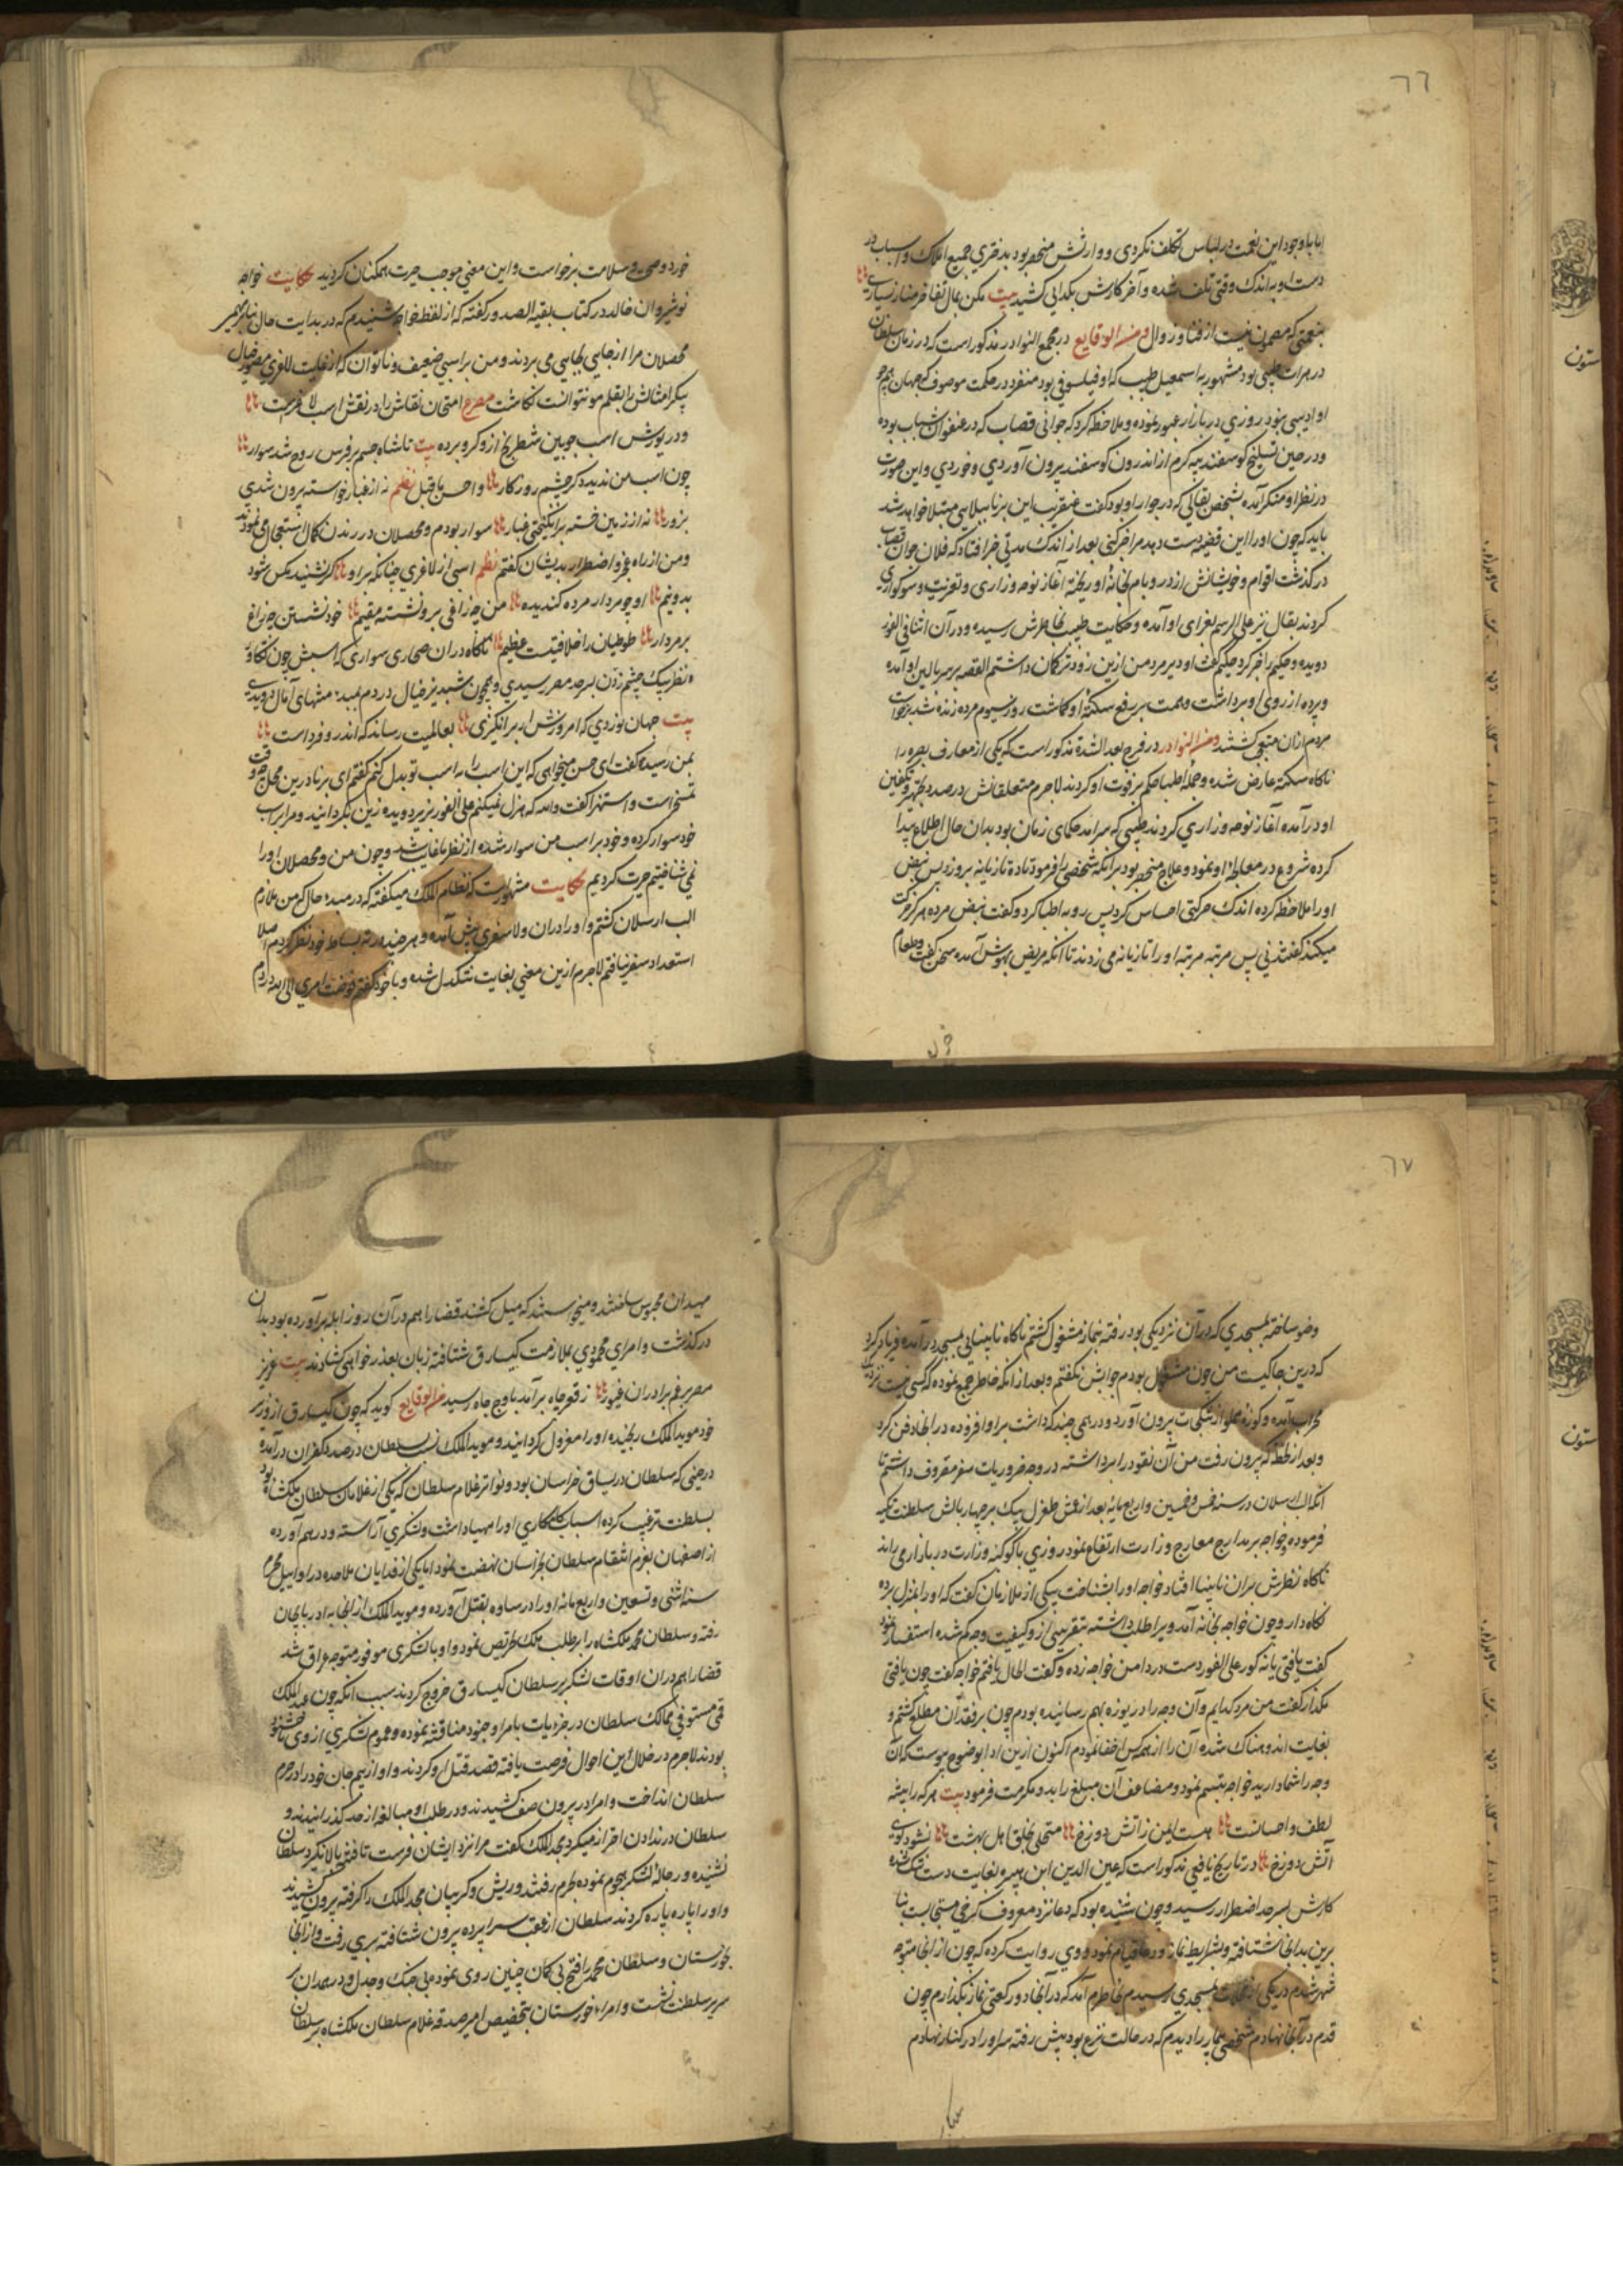 ٦٦
اما با وجود این نعمت در لباس تکلف نکردی و وارثش منحصر بود بدختری جمیع املاک و اسباب در
دست او به اندک وقتی تلف شده و آخر کارش بکدایی کشید بیت مکن بمال تفاخر مناز بسیاری
بنعمتی که مصون نیست از فنا و زوال ومن الوقایع در مجمع النوادر مذکور است که در زمان سلطان
در هرات طبیبی بود مشهور به اسمعیل طبیب که او فیلسوفی بود منفرد در حکمت موصوف که جهان همچو
او ادیبی نبود روزی در بازار عبور نموده و ملاحظه کرد که جوانی قصاب که در عنفوان شباب بوده
و در حین تسلیخ کوسفند پیه کرم از اندرون کوسفند بیرون آوردی و خوردی و این صورت
در نظر او منکر آمده بشخص بقالی که در جوار او بود کفت عنقریب این برنا ببلایی مبتلا خواهد شد
باید که چون او را این قضیه دست دهد مرا خبر کنی بعد از اندک مدتی خبر افتاد که فلان جوان قصاب
در کذشت اقوام و خویشانش از در و بام بخانهٔ او ریخته آغاز نوحه و زاری و تعزیت و سوکواری
کردند بقال نیز علی الرسم بعزای او آمده و حکایت طبیب بخاطرش رسیده و در آن اثنا فی الفور
دویده و حکیم را خبر کرد حکیم کفت او دیر مرد من ازین زودتر کمان داشتم القصه بر سر بالین او آمده
و پرده از روی او برداشت و همت بر رفع سکتهٔ او کماشت روز سیوم مرده زنده شد برخواست
مردم ازان متعجب کشتند ومن النوادر در فرج بعد الشدة مذکور است که یکی از معارف بصره را
ناکاه سکته عارض شده و جمله اطبا حکم بر فوت او کردند لاجرم متعلقانش در صدد تجهیز و تکفین
او درآمده آغاز نوحه و زاری کردند طبیبی که سرآمد حکمای زمان بود بدان حال اطلاع پیدا
کرده شروع در معالجهٔ او نمود و علاج منحصر بود برانکه شخصی را فرمود تا ده تازیانه بر وزد پس نبض
او را ملاحظه کرده اندک حرکتی احساس کرد پس رو به اطبا کرد و کفت نبض مرده هرکز حرکت
میکند کفتند نی پس مرتبه مرتبه او را تازیانه می زدند تا آنکه مریض بهوش آمده سخن کفت و طعام
خورد و صحیح و سلامت برخواست و این معنی موجب حیرت همکنان کردید حکایت خواجه
نوشیروان خالد در کتاب بقیه الصدور کفته که از لفظ خواجه شنیدم که در بدایت حال
محصلان مرا از جایی بجایی می بردند و من بر اسبی ضعیف و ناتوان که از غایت لاغری مصور خیال
پیکر امثالش را بقلم مو نتوانست نکاشت مصرع امتحان نقاش را در نقش اسب لاغرست
و در یورش اسب چوبین شطرنج ازو کرو برده بیت تا شاه جسم بر فرس روح شد سوار
چون اسب من ندیده کر چشم روزکار واحسن ما قیل نظم نه از غبار خواسته بیرون شدی
بزور نه از زمین خسته برانکیختی غبار سوار بودم و محصلان در رندن کمال استعجال می نمودند
و من از راه عجز و اضطرار بدیشان کفتم نظم اسبی از لاغری چنانکه براو کر نشیند مکس شود
بدونیم او چو مردار مرده کندیده من چو زاغی برو نشسته مقیم خود نشستن چو زاغ
بر مردار طوطیان را خلافتیست عظیم ناکاه در ان صحاری سواری که اسبش چون تکاو
نظر بیک چشم زدن بسرحد مصر رسیدی و همچون شبدیز خیال در دم ببد، منتهای آمال دویدی
بیت جهان نوزدی که امروزش ار برانکیزی بعالمیت رساند که اندرو فرداست
بمن رسیده کفت ای حسن میخواهی که این اسب را به اسب تو بدل کنم کفتم ای برنا درین محل چه وقت
تمسخر است و استهزا کفت والله که هزل نمیکنم علی الفور بزیر دویده زین بکردانید و مرا بر اسب
خود سوار کرده و خود بر اسب من سوار شده از نظر ما غایب شد و چون من و محصلان او را
نمی شناختیم حیرت کردیم حکایت مشهور است که نظام الملک میکفته که در مبد، حال که من ملازم
الب ارسلان کشتم و او را دران ولا سفری پیش آمده و هر چند در ته بساط خود نظر کردم اصلا
استعداد سفر نیافتم لاجرم ازین معنی بغایت تنکدل شده و با خود کفتم فوضت امری الی الله در وم
٦٧
وضو ساخته بمسجدی که در آن نزدیکی بود رفته بنماز مشغول کشتم ناکاه نابینایی بمسجد درآمده فریاد کرد
که درین جا کیست من چون مشغول بودم جوابش نکفتم و بعد از انکه خاطر جمع نموده که کسی نیست نزدیک
محراب آمده و کوزه مملو از تنکجات بیرون آورد و درهمی چند که داشت براو افزوده در انجا دفن کرد
و بعد از لحظه که بیرون رفت من آن نقود را برداشته در وجه ضروریات سفر مصروف داشتم تا
انکه الب ارسلان در سنه خمس و خمسین و اربع مایه بعد از عمش طغرل بیک بر چهار بالش سلطنت تکیه
فرموده و خواجه بر مدارج معارج وزارت ارتفاع نمود روزی با کوکبه وزارت در بازار می راند
ناکاه نظرش بران نابینا افتاد خواجه او را بشناخت بیکی از ملازمان کفت که او را بمنزل برده
نکاه دار و چون خواجه بخانه آمد ویرا طلب داشته بتقریبی ازو کیفیت وجه کم شده استفسار نمود
کفت یافتی یا نه کور علی الفور دست در دامن خواجه زده و کفت الحال یافتم خواجه کفت چون یافتی
کذار کفت من مرد کدایم و آن وجه را در یوزه بهم رسانیده بودم چون بر فقدان مطلع کشتم و
بغایت اندوهناک شده آن را از همه کس اخفا نمودم اکنون ازین ادا بوضوح پیوست که آن
وجه را شما دارید خواجه تبسم نمود و مضاعف آن مبلغ را بدو مکرمت فرمود بیت هر که را پیشه
لطف و احسانست هست ایمن ز آتش دوزخ متحلی بخلق اهل بهشت نشود کوی
آتش دوزخ در تاریخ یافعی مذکور است که عین الدین ابن هبیره بغایت دست تنک شده
کارش بسرحد اضطرار رسید و چون شنیده بود که دعا نزد معروف کرخی مستجابست بنا
برین بدانجا شتافته و بشرایط نماز و دعا قیام نمود و وی روایت کرده که چون از انجا متوجه
شهر شدم در یکی از محلات بمسجدی رسیدم بخاطرم آمد که در آنجا دو رکعتی نماز بکذارم چون
قدم در آنجا نهادم شخصی بیمار را دیدم که در حالت نزع بود پیش رفته سر او را در کنار نهادم
مهیدان محبوس ساختند و میخواستند که میل کشند قضا را هم در آن روز ابله برآورده بود بدان
در کذشت و امرای محمودی بملازمت کیسارق شتافته زبان بعذر خواهی کشادند بیت عزیز
مصر برغم برادران غیور ز قعر چاه برآمد باوج جاه رسید من الوقایع کوید که چون کیسارق از وزیر
خود موید الملک رنجیده او را معزول کردانید و موید الملک نسبت بسلطان در صدد کفران درآمده
در حینی که سلطان در یساق خراسان بود و نواتر غلام سلطان که یکی از غلامان سلطان ملکشاه بود
بسلطنت ترغیب کرده اسباب کامکاری او را مهیا داشت و لشکری آراسته و درهم آورده
از اصفهان بعزم انتقام سلطان بخراسان نهضت نمود اما یکی از فدایان ملاحده در اوایل محرم
سنه اثنی و تسعین و اربع مائه او را در ساوه بقتل آورده و موید الملک از انجا به ادربایجان
رفته و سلطان محمد ملکشاه را بر طلب ملک تحریص نمود و او با لشکری موفور متوجه عراق شد
قضا را هم دران اوقات لشکر بر سلطان کیسارق خروج کردند سبب انکه چون مجد الملک
قمی مستوفی ممالک سلطان در جزویات با مرا و جنود مناقشه نموده و عموم لشکری از وی ناخوشنود
بودند لاجرم در خلال این احوال فرصت یافته قصد قتل او کردند و او از بیم جان خود را در حرم
سلطان انداخت و امرا در بیرون صف کشیدند و در طلب او مبالغه از حد کذرانیدند و
سلطان در ندادن احتراز میکرد مجد الملک کفت مرا نزد ایشان فرست تا فتنه بالا نکیرد سلطان
نشنیده و رجالهٔ لشکر هجوم نموده بحرم رفتند و ریش و کریبان مجد الملک را کرفته بیرون کشیدند
و او را پاره پاره کردند سلطان از عقب سراپرده بیرون شتافته بری رفت و از آنجا
بخوزستان و سلطان محمد را فتح بی کمان چنین روی نموده بی جنک و جدل و در همدان بر
سریر سلطنت نشست و امراء خوزستان بتخصیص امیر صدقه غلام سلطان ملکشاه بر سلطان
ستون
ستون